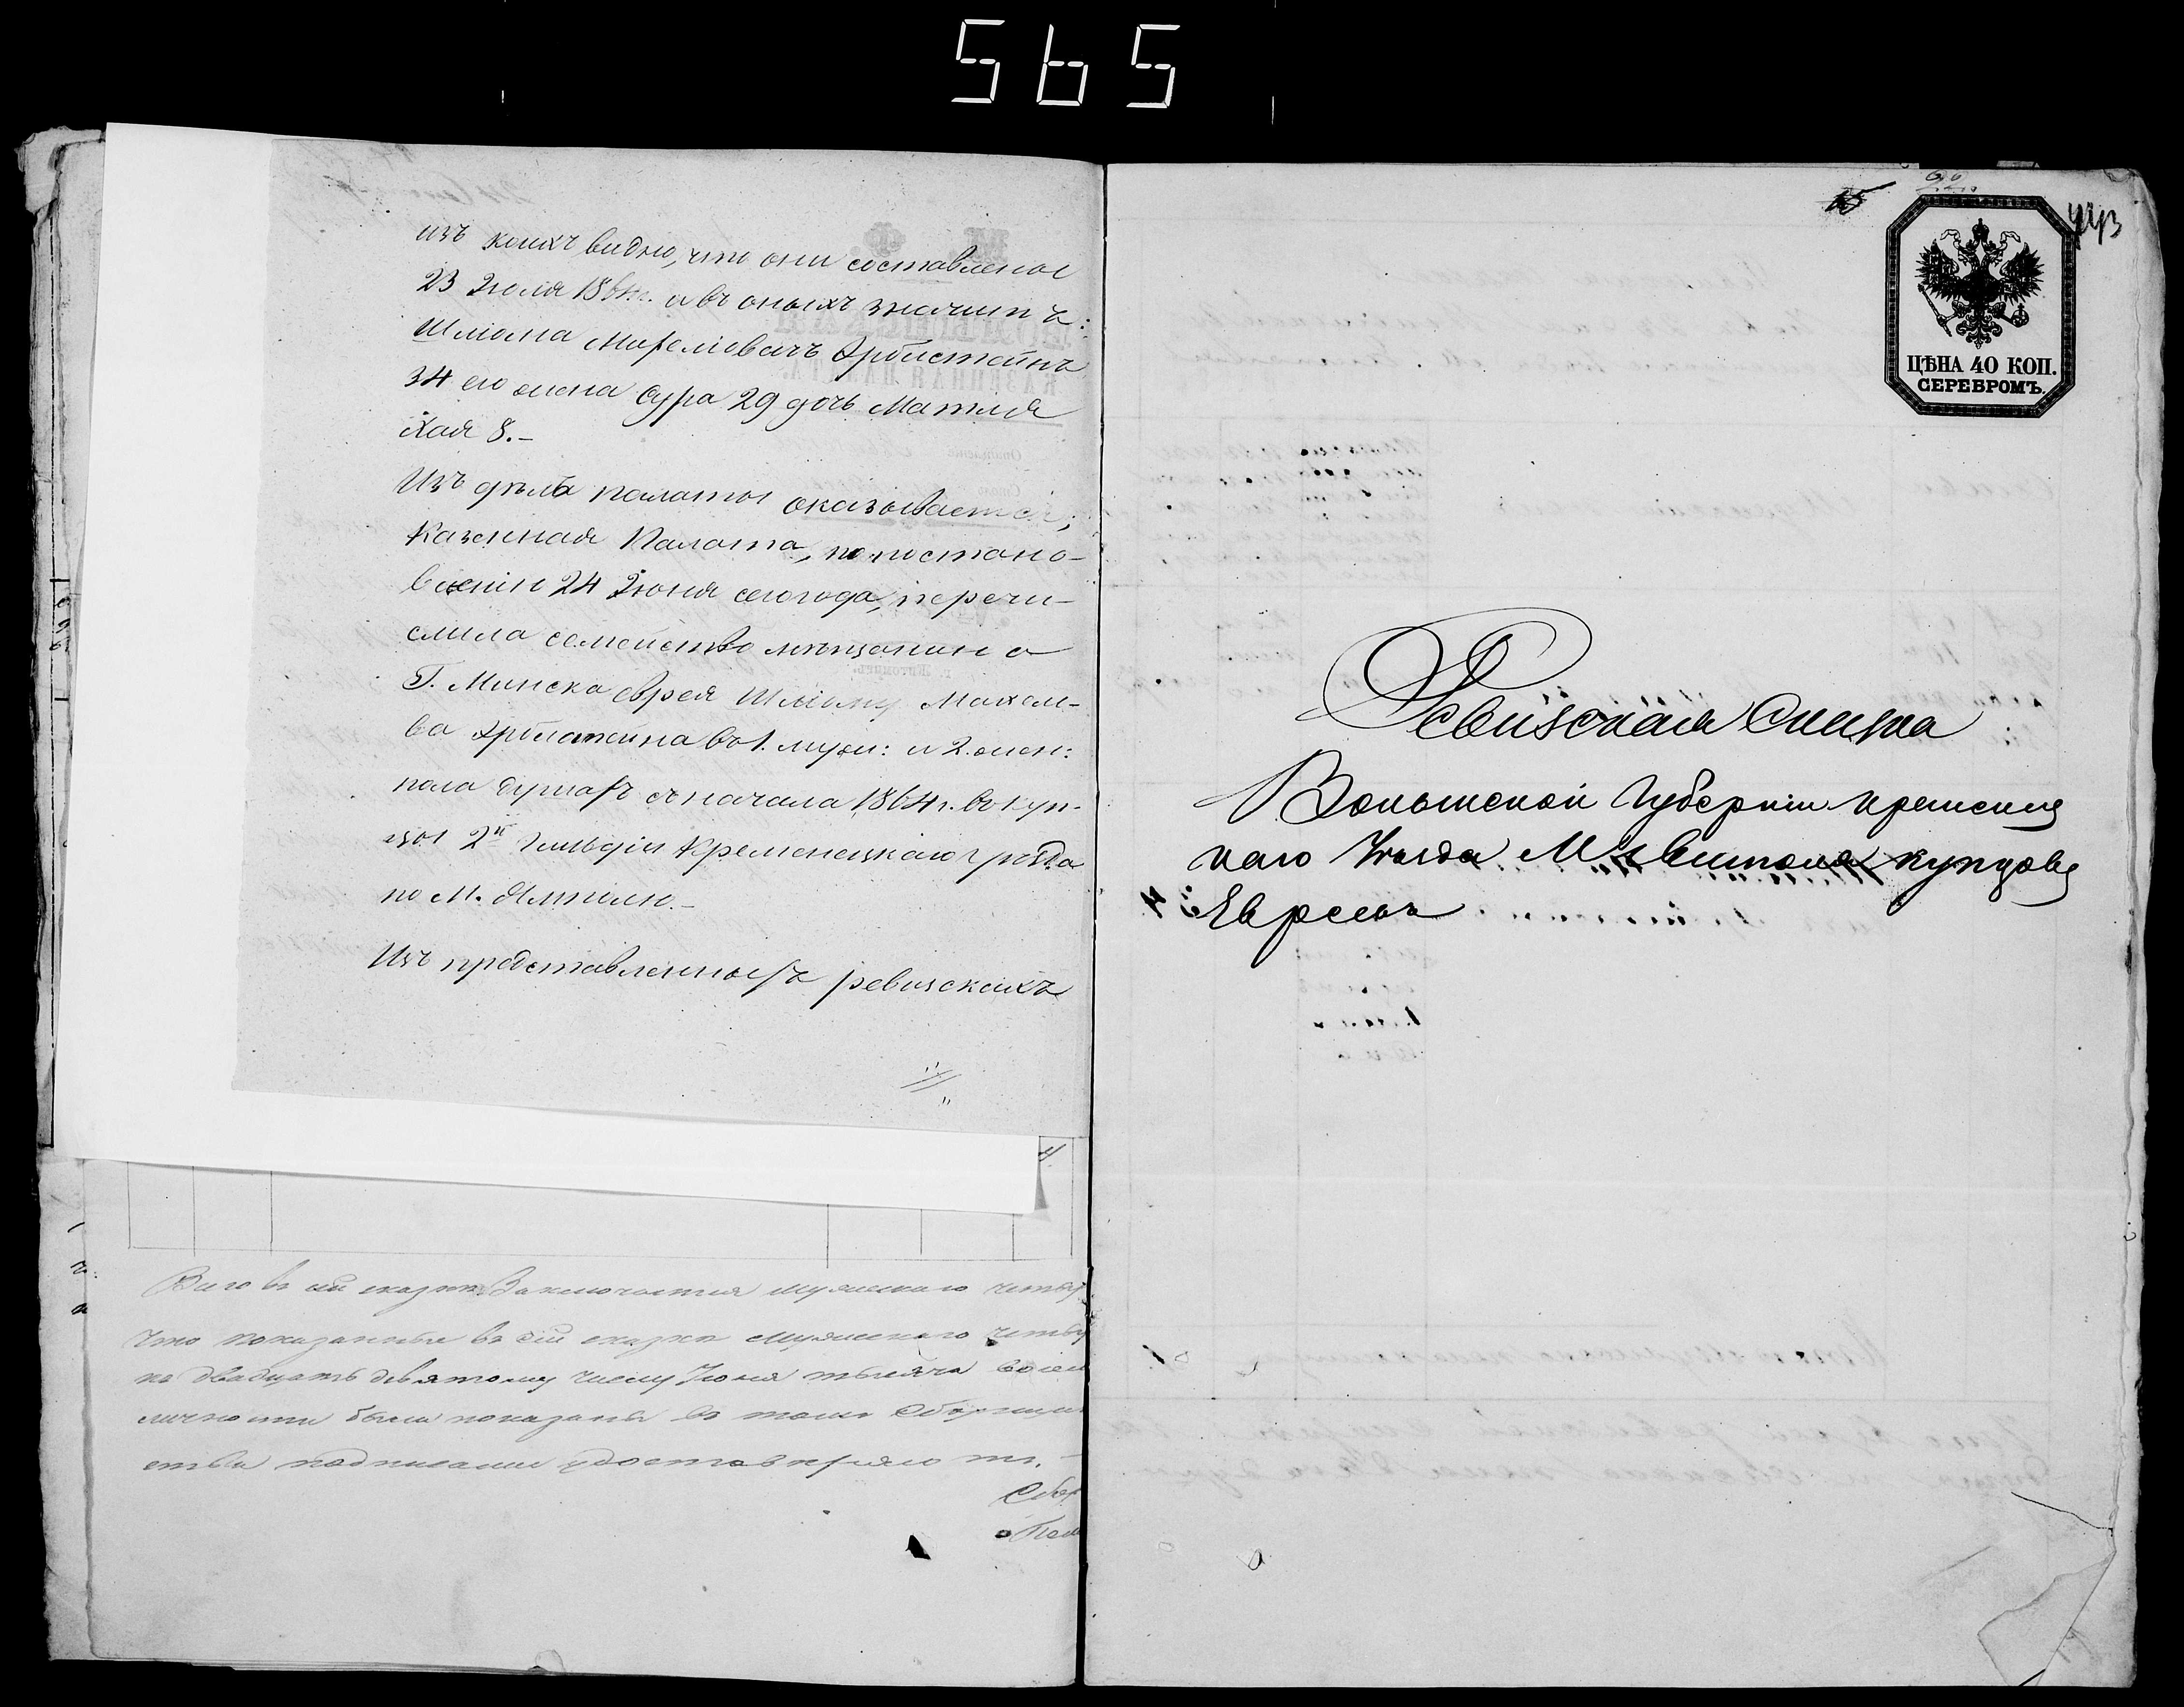 565
изъ коихъ видно, что они составлены
23 Июля 1864 г. и въ оныхъ значитъ:
Шліома Арбистейнъ
34 его жена Сура 29 дочь Матля
Хая 8.–
Изъ дѣлъ палаты оказывается;
Казенная Палата, по постано-
вленію 24 Июня сего года, перечи-
слила семейство мѣщанина
Г. Минска еврея Шліому
ва Арбистейна въ 1. муж: и 2. жен:
пола душахъ съ начала 1864 г. въ куп-
цы 2й гильдіи Кременецкаго уѣзда
по М. Ямполю.–
Изъ представленныхъ ревизскихъ
Всего въ сей сказкѣ заключается мужескаго
Что показанные въ сей сказкѣ мужескаго
на двадцать девятому числу Июня тысяча
были показаны въ томъ
подписами
22
ЦѢНА 40 КОП.
СЕРЕБРОМЪ.
Ревизская Сказка
Волынской Губерніи Кремене
каго Уезда М. купцовъ
Евреевъ